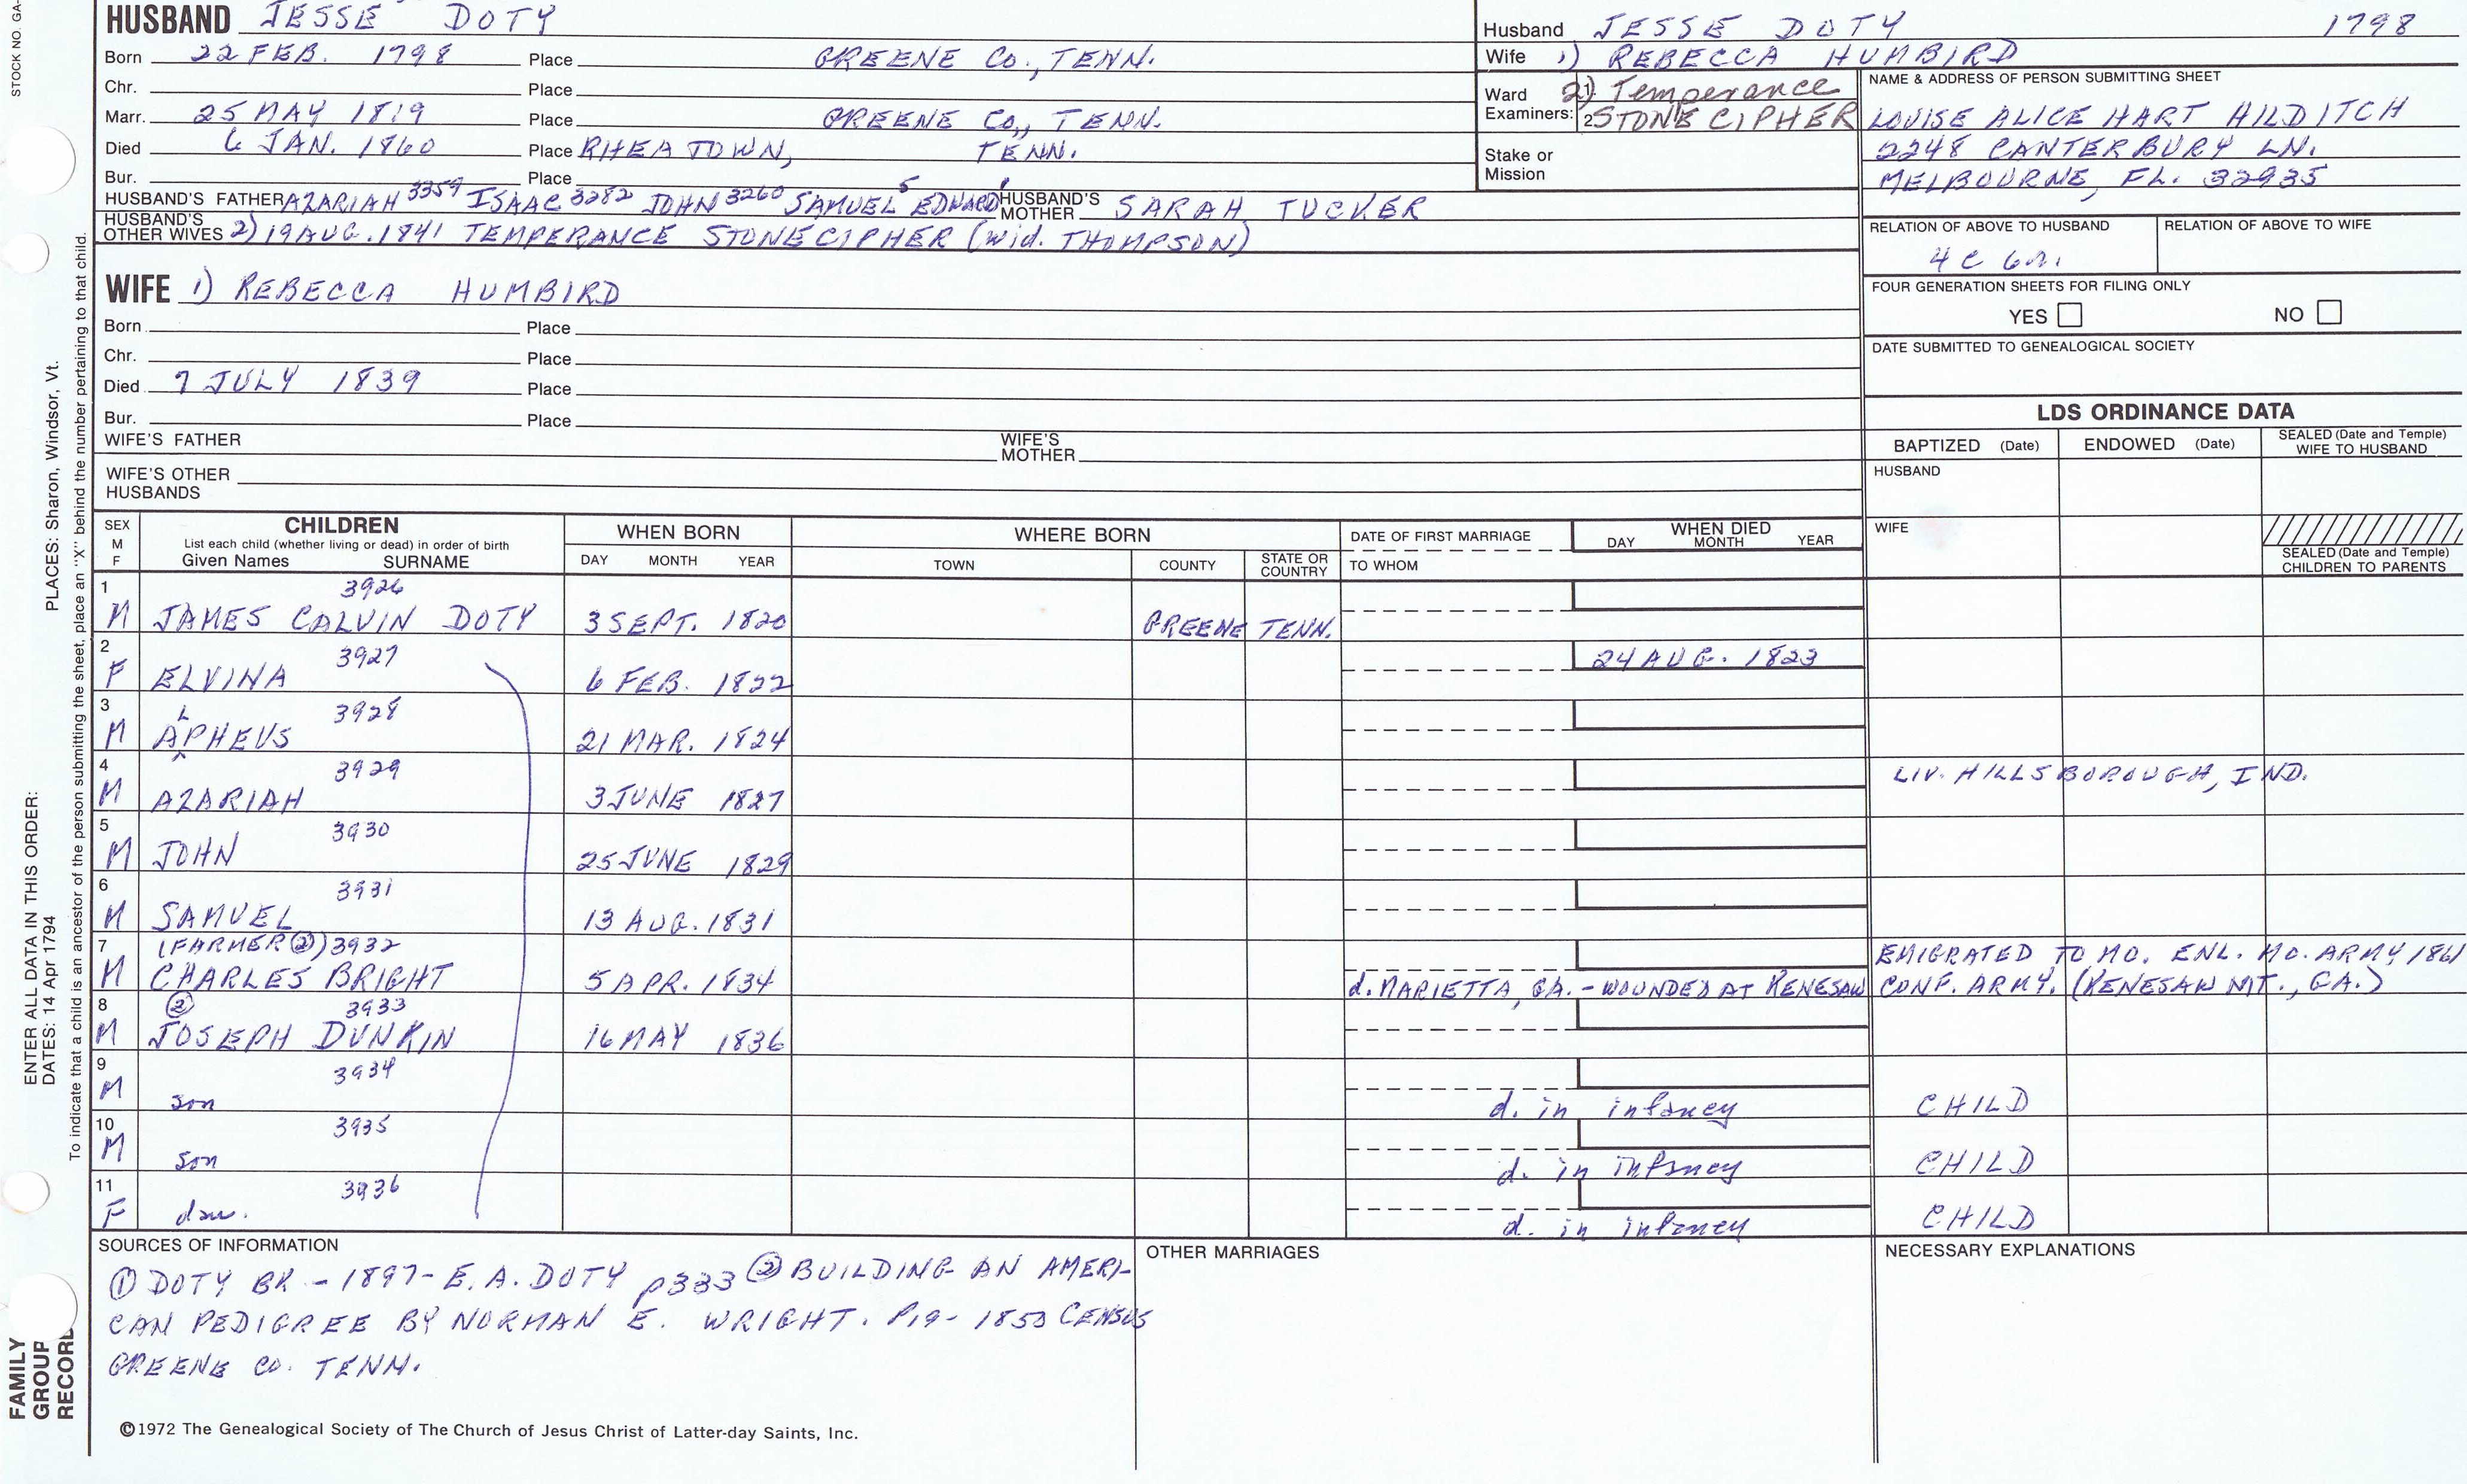 STOCK NO. GA-
HUSBAND JESSE DOTY
Born 22 FEB. 1798 Place GREENE CO., TENN.
Chr. Place
Marr. 25 MAY 1819 Place GREENE CO., TENN.
Died 6 JAN. 1860 Place RHEATOWN, TENN.
Bur. Place
HUSBAND'S FATHER AZARIAH 3359 ISAAC 3282 JOHN 3260 SAMUEL 5 EDWARD 1 HUSBAND'S MOTHER SARAH TUCKER
HUSBAND'S OTHER WIVES 2) 19 AUG. 1841 TEMPERANCE STONECIPHER (wid. THOMPSON)
Husband JESSE DOTY 1798
Wife 1) REBECCA HUMBIRD
Ward Examiners: 1. 2) Temperance
2. STONECIPHER
Stake or Mission
NAME & ADDRESS OF PERSON SUBMITTING SHEET
LOUISE ALICE HART HILDITCH
2248 CANTERBURY LN.
MELBOURNE, FL. 32935
RELATION OF ABOVE TO HUSBAND RELATION OF ABOVE TO WIFE
4 C 6 r.
FOUR GENERATION SHEETS FOR FILING ONLY
YES NO
DATE SUBMITTED TO GENEALOGICAL SOCIETY
WIFE 1) REBECCA HUMBIRD
Born Place
Chr. Place
Died 7 JULY 1839 Place
Bur. Place
WIFE'S FATHER WIFE'S MOTHER
WIFE'S OTHER HUSBANDS
LDS ORDINANCE DATA
BAPTIZED (Date) ENDOWED (Date) SEALED (Date and Temple) WIFE TO HUSBAND
HUSBAND
WIFE
SEALED (Date and Temple) CHILDREN TO PARENTS
SEX M F
CHILDREN
List each child (whether living or dead) in order of birth
Given Names SURNAME
WHEN BORN
DAY MONTH YEAR
WHERE BORN
TOWN COUNTY STATE OR COUNTRY
DATE OF FIRST MARRIAGE
TO WHOM
WHEN DIED
DAY MONTH YEAR
1 3926
M JAMES CALVIN DOTY 3 SEPT. 1820 GREENE TENN.
2 3927 24 AUG. 1823
F ELVINA 6 FEB. 1822
3 L 3928
M APHEUS 21 MAR. 1824
4 3929 LIV. HILLSBOROUGH, IND.
M AZARIAH 3 JUNE 1827
5 3930
M JOHN 25 JUNE 1829
6 3931
M SAMUEL 13 AUG. 1831
7 (FARMER ②) 3932 EMIGRATED TO MO. ENL. MO. ARMY 1861
M CHARLES BRIGHT 5 APR. 1834 d. MARIETTA, GA. - WOUNDED AT KENESAW CONF. ARMY. (KENESAW MT., GA.)
8 ② 3933
M JOSEPH DUNKIN 16 MAY 1836
9 3934
M son d. in infancy CHILD
10 3935
M son d. in infancy CHILD
11 3936
F dau. d. in infancy CHILD
SOURCES OF INFORMATION
① DOTY BK - 1897 - E. A. DOTY p333 ② BUILDING AN AMERI-
CAN PEDIGREE BY NORMAN E. WRIGHT. P.19 - 1850 CENSUS
GREENE CO. TENN.
OTHER MARRIAGES
NECESSARY EXPLANATIONS
©1972 The Genealogical Society of The Church of Jesus Christ of Latter-day Saints, Inc.
FAMILY GROUP RECORD
ENTER ALL DATA IN THIS ORDER:
DATES: 14 Apr 1794
PLACES: Sharon, Windsor, Vt.
To indicate that a child is an ancestor of the person submitting the sheet, place an "X" behind the number pertaining to that child.